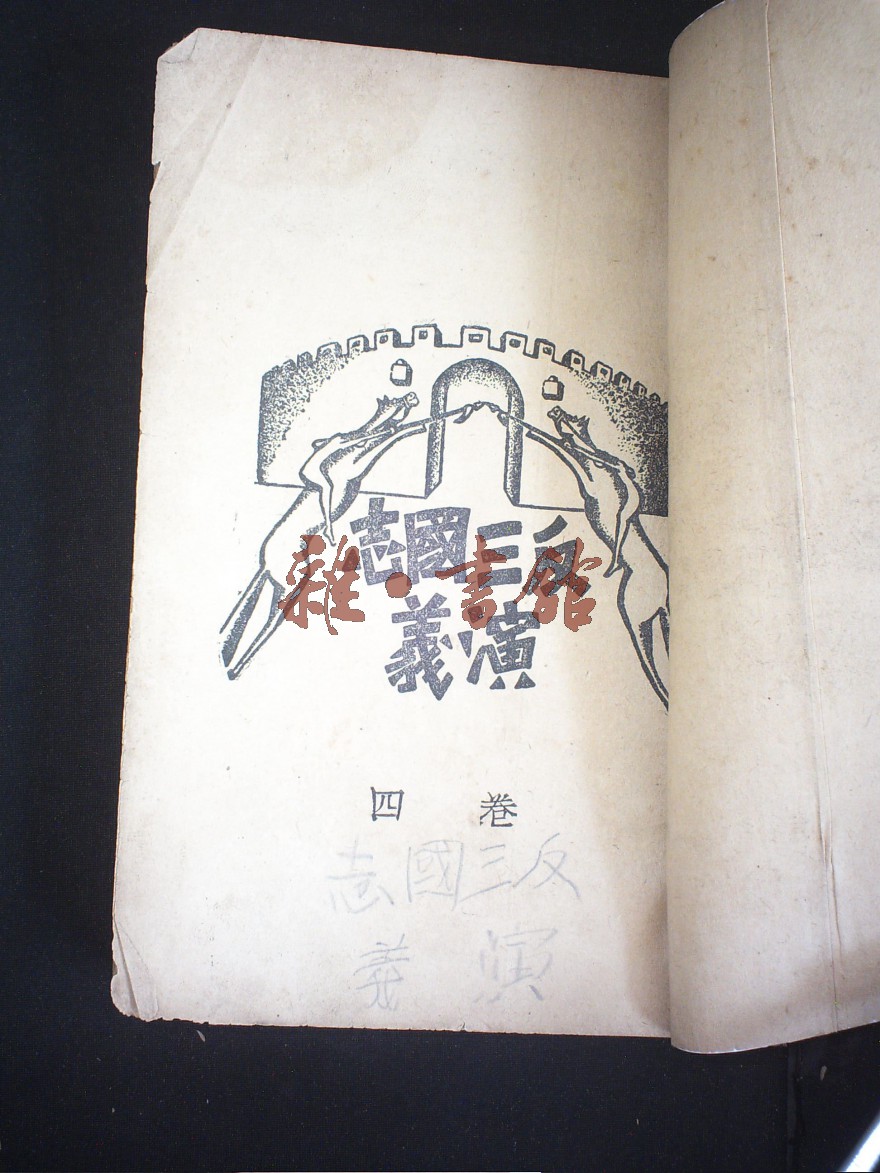 反三國志
演義
雜·書館
卷四
反三國志
演義